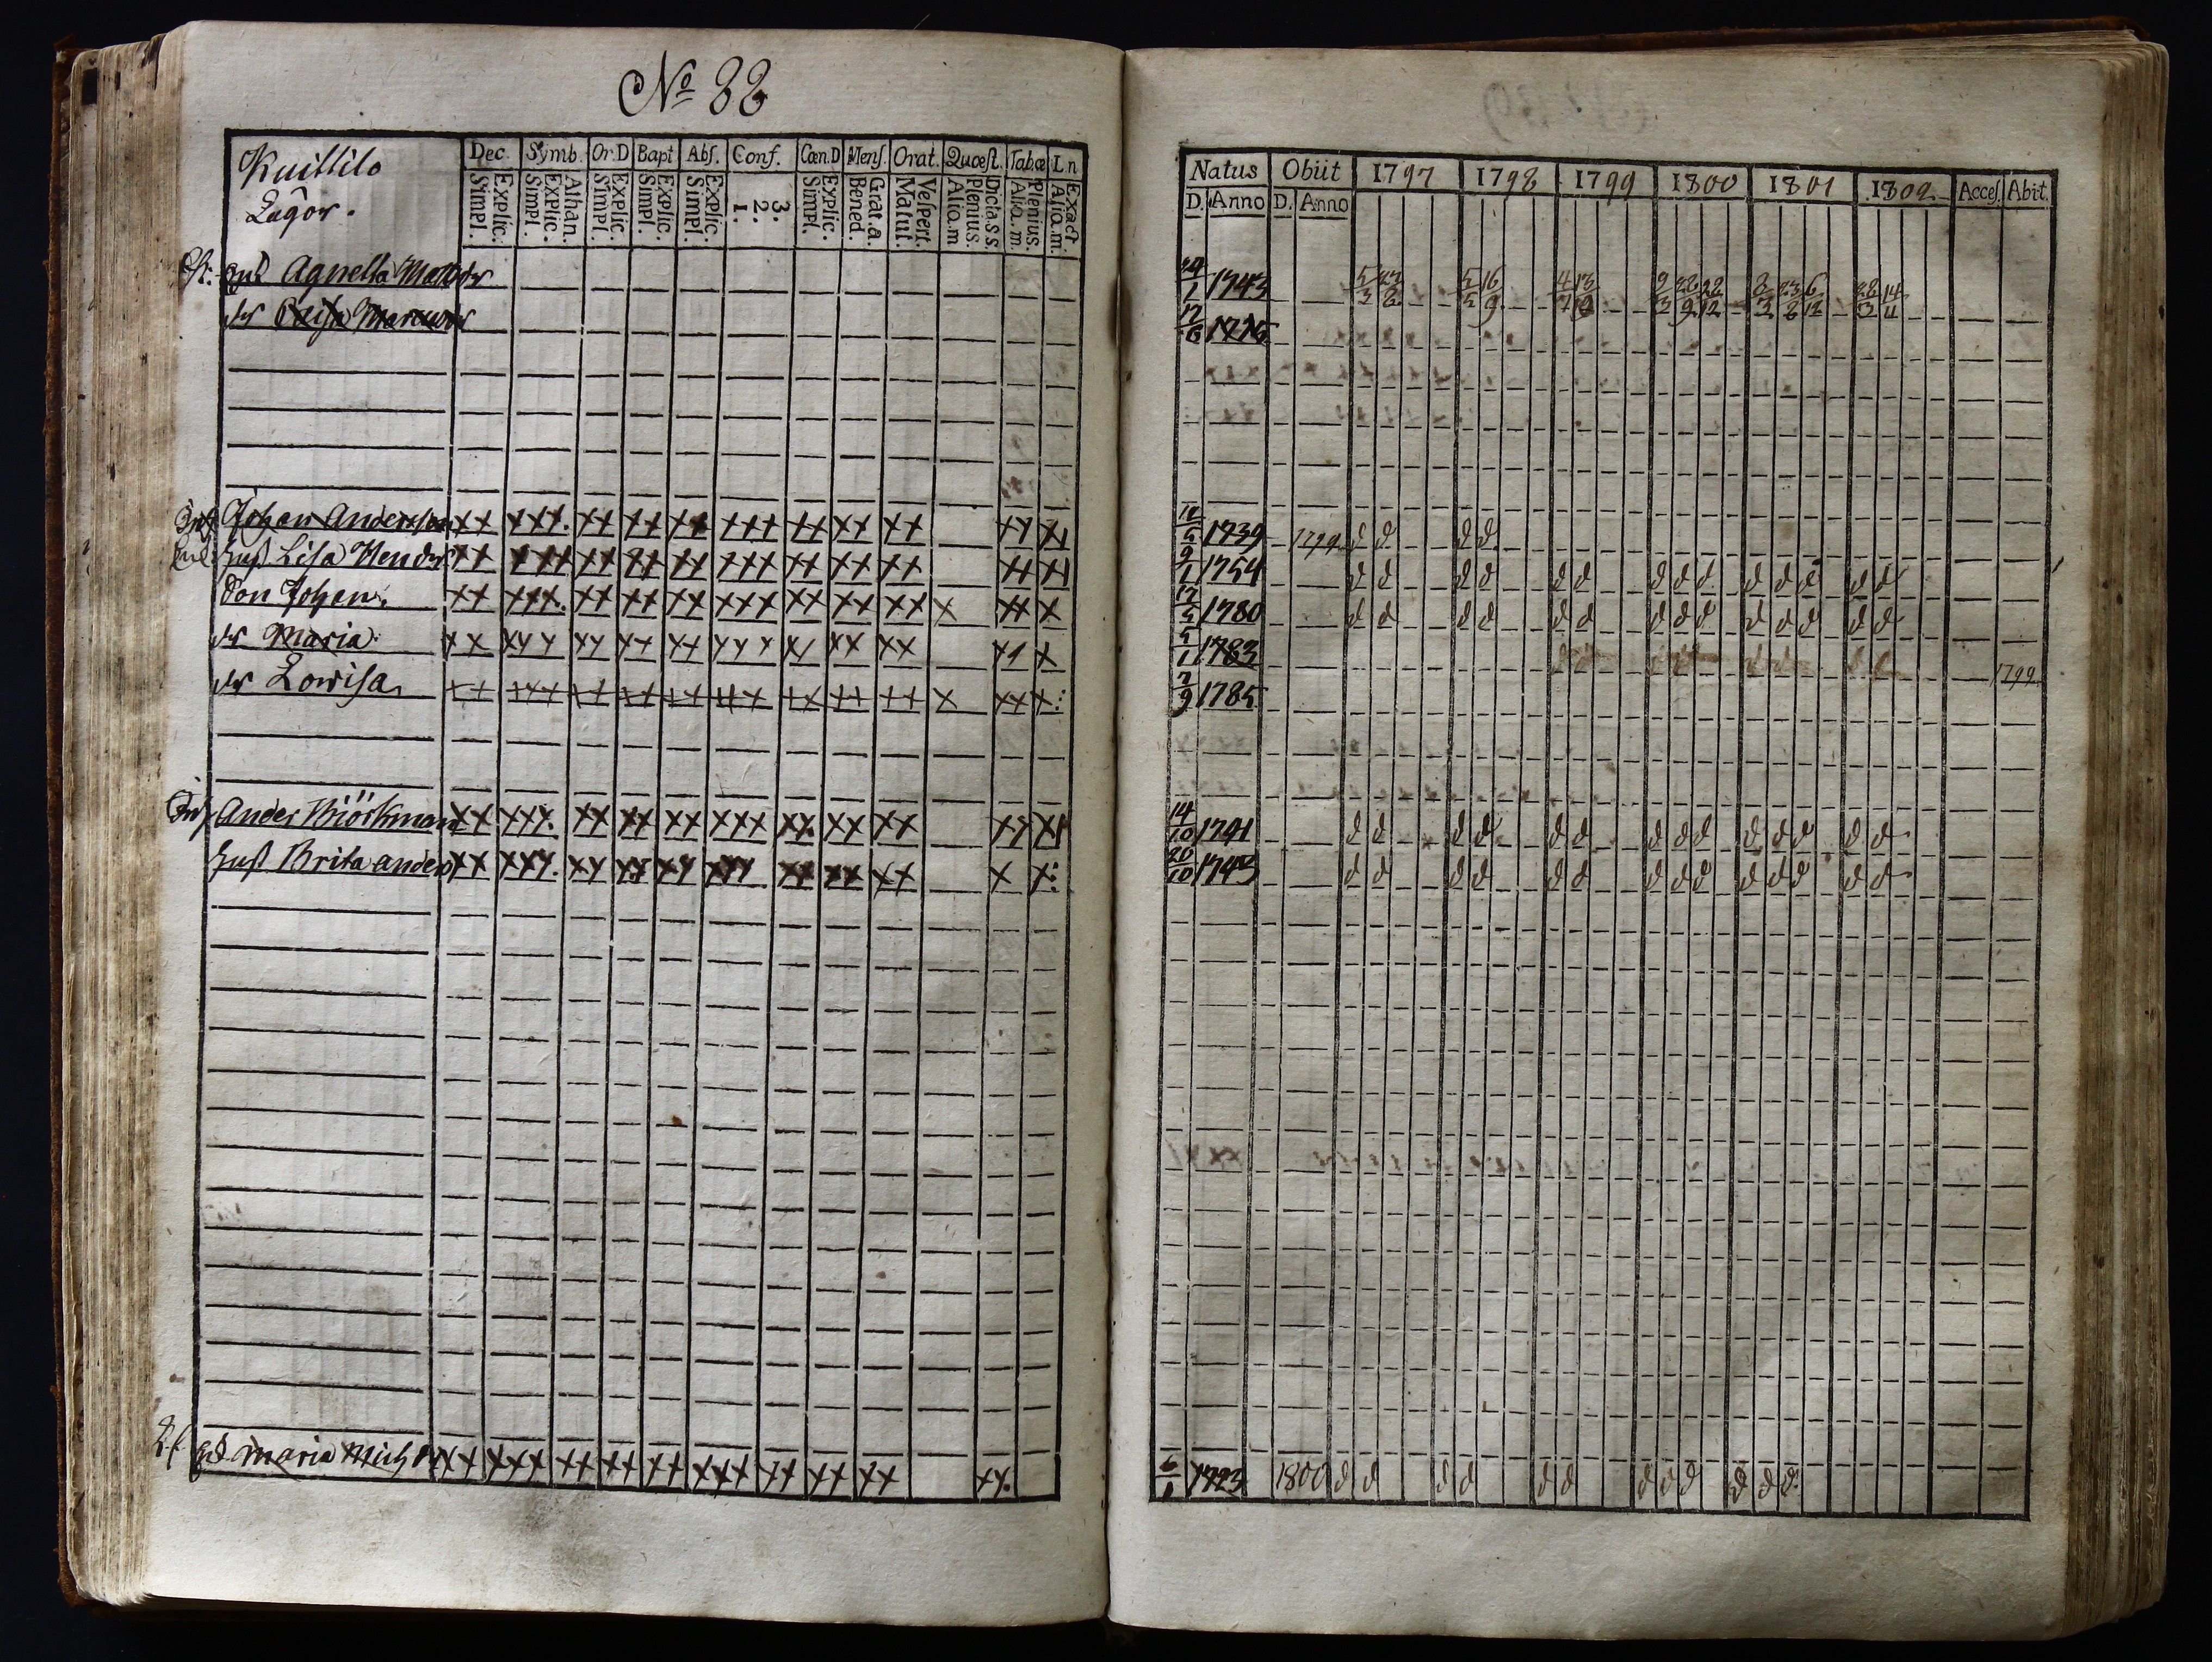 No 88
Kuittilo
Lagor.
Dec. Symb. Or.D Bapt. Abs. Conf. Cœn.D Mens. Orat. Quæst. Tab.œ L.n
Simpl. Explic. Simpl. Explic. Athan. Simpl. Explic. Simpl. Explic. Simpl. Explic. 1. 2. 3. Simpl. Explic. Bened. Grat.a. Matut. Vespert. Alio.m Plenius. Dicta s s. Alio.m. Plenius. Alio.m. Exact
Natus Obiit 1797 1798 1799 1800 1801 1802 Acces. Abit.
D. Anno D. Anno
Enk Agnetta Matts dr 24/1 1743 5/3 23/8 5/5 16/9 4/7 9/3 28/9 28/12 8/3 23/8 6/12 28/3 14/11
dr 17/6 1776
Johan Andersson xx xxx. xx xx xx xxx xx xx xx xx x 1739 1799 d d d d
hust Lisa Hendr xx xxx xx xx xx xxx xx xx xx xx x 9/1 1754 d d d d d d d d d d d d d d
Son Johan. xx xxx. xx xx xx xxx xx xx xx x xx x 17/5 1780 d d d d d d d d d d d d d d
dr Maria xx xxx xx xx xx xxx xx xx xx xx x 5/1 1783 1799
dr Lovisa xx xxx xx xx xx xxx xx xx xx x xx x: 7/9 1785
Anders Biörkman xx xxx. xx xx xx xxx xx. xx xx xx x 14/10 1741 d d d d d d d d d d d d d
hust Brita anders xx xxx. xx xx xx xxx xx xx xx x x: 20/10 1743 d d d d d d d d d d d d d d
Maria Mich dr xx xxx xx xx xx xxx xx xx xx xx. 6/1 1723 1800 d d d d d d d d d d d d